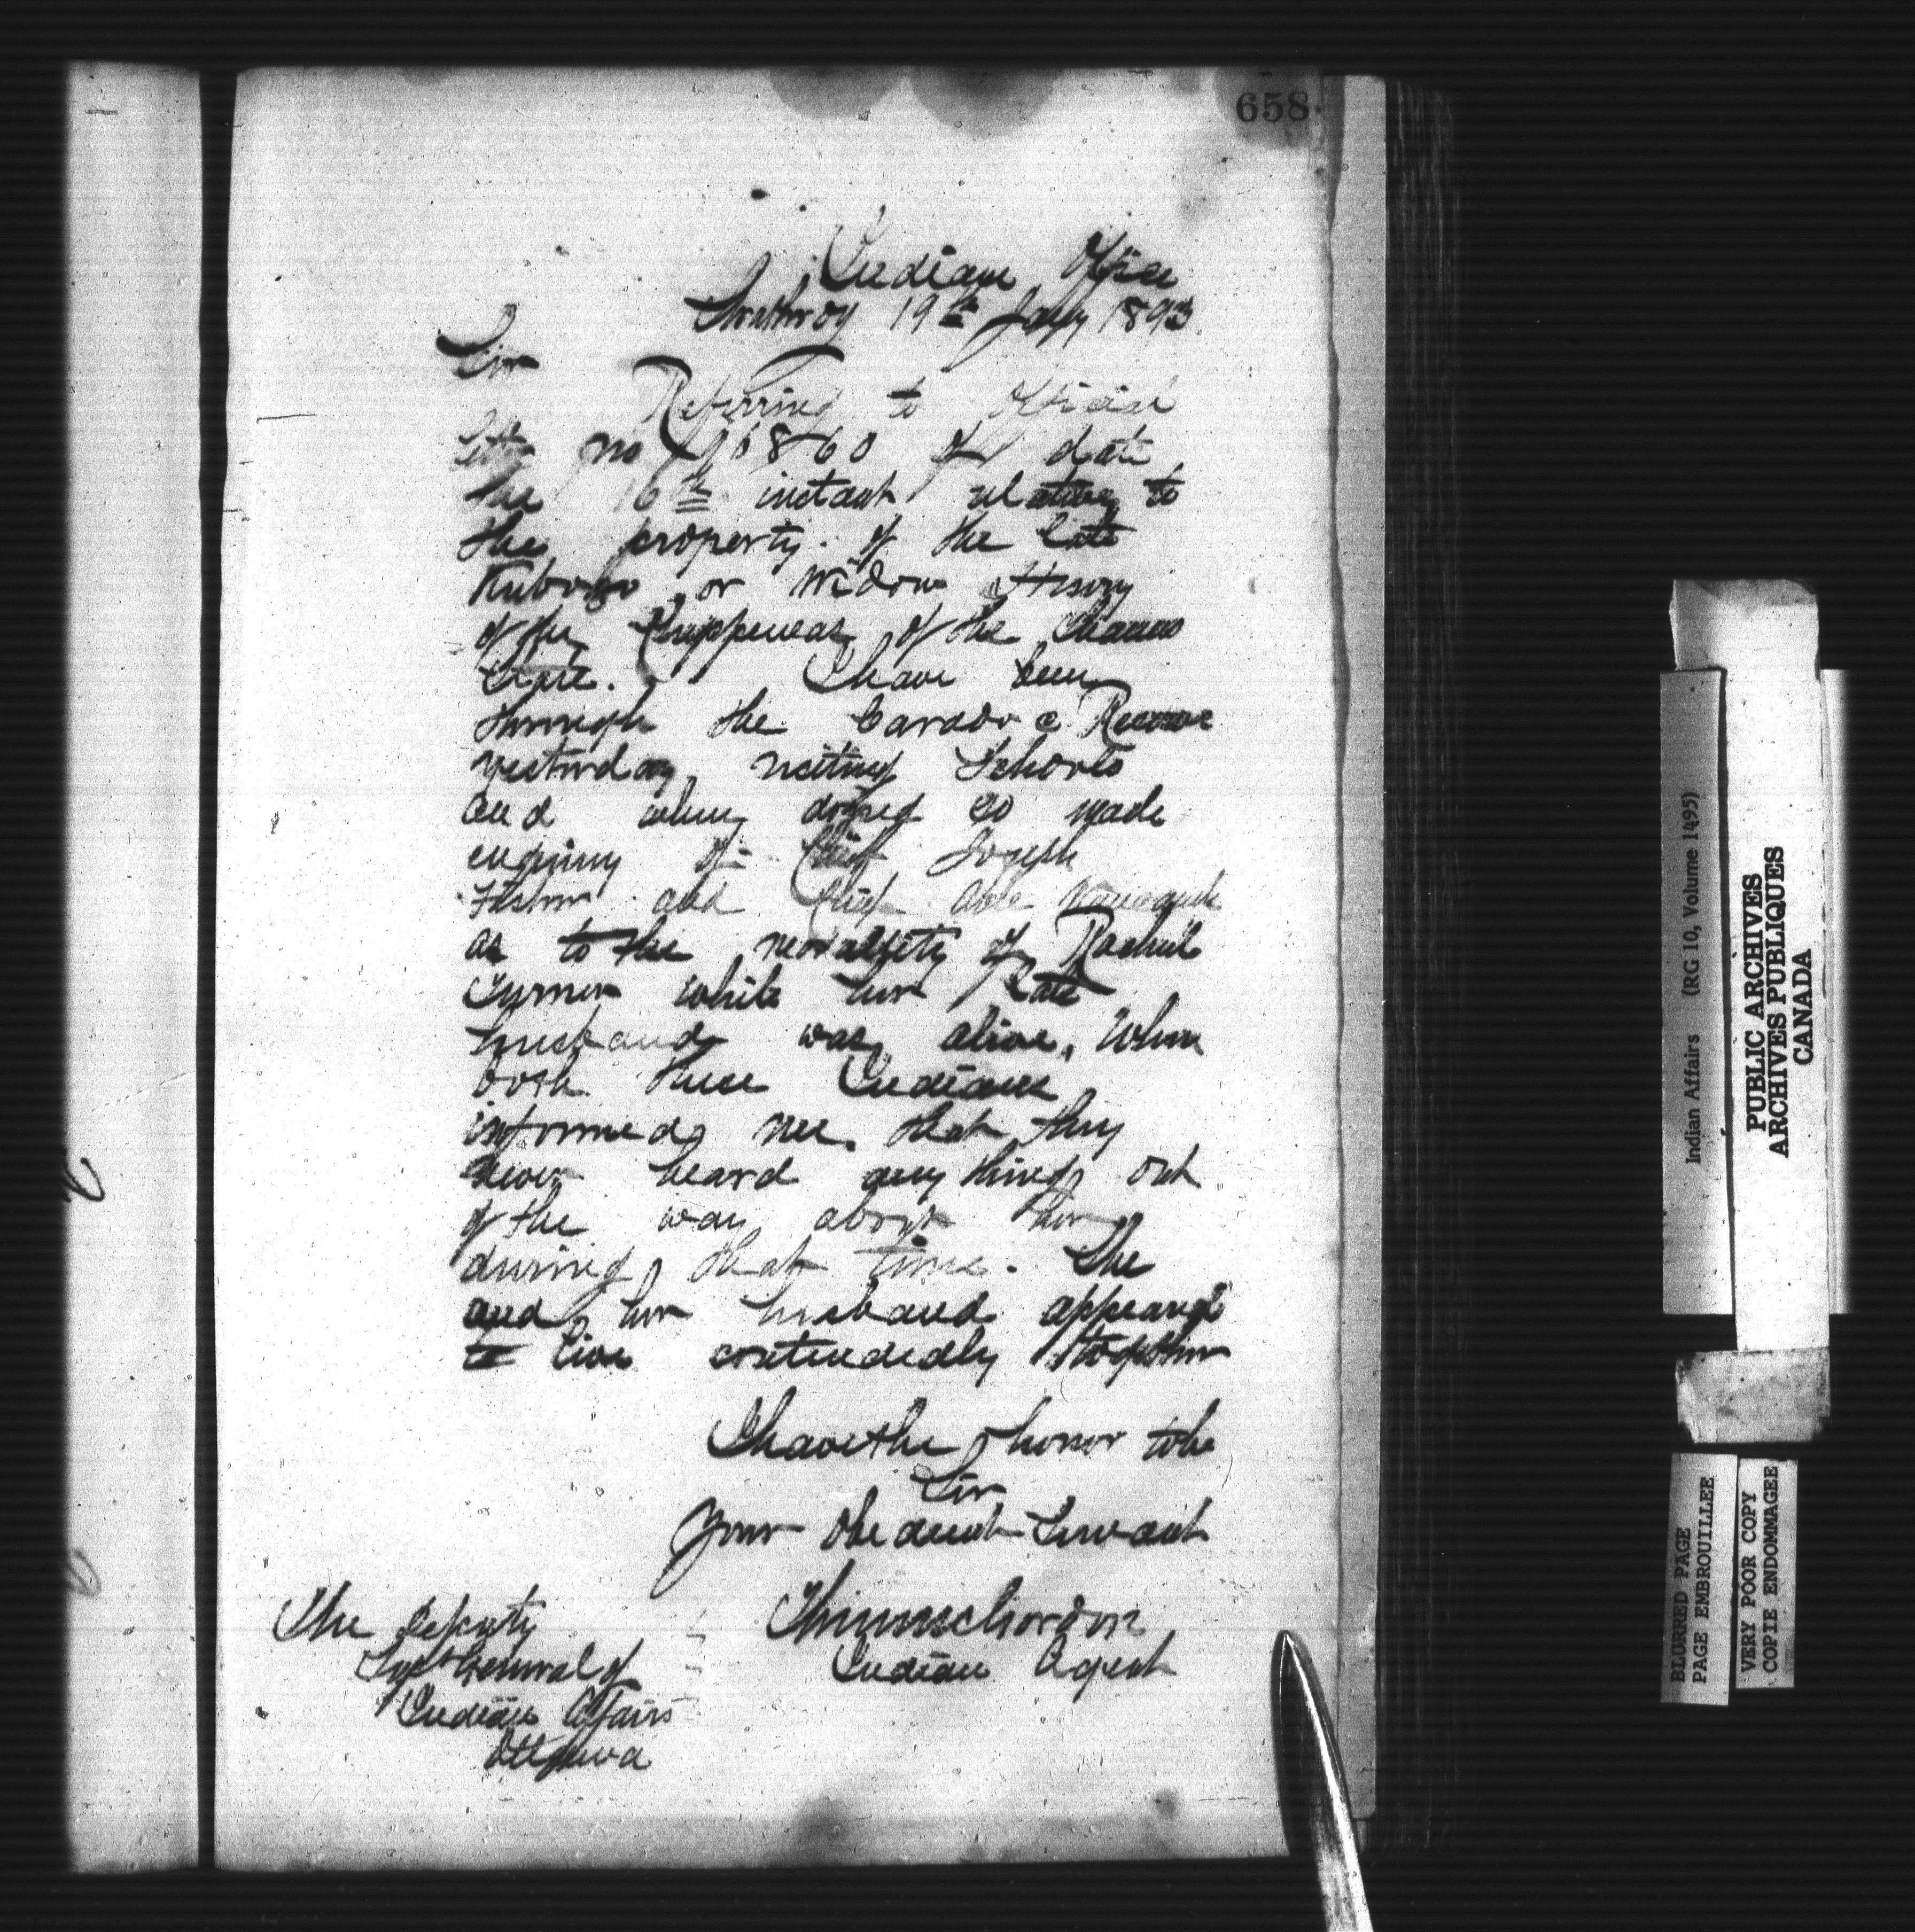 658
Indian Office
Strathroy 19th Jany 1893
Sir
Referring to Official
letter no 96860 of date
the 16th instant relative to
the property of the late
or Widow Henry
of the Chippewas of the Thames
tribe. I have been
through the Caradoc Reserve
yesterday visiting Schools
and when doing so made
enquiry of Chief Joseph
Fisher and Chief Able
as to the morality of Rachel
Turner while her late
husband was alive. When
both these Indians
informed me that they
never heard any thing out
of the way about her
during that time. She
and her husband appeared
to live contendedly together
I have the honor to be
Sir
Your Obedient Servant
Thomas Gordon
Indian Agent
The Deputy
Supt General of
Indian Affairs
Ottawa
Indian Affairs (RG 10, Volume 1495)
PUBLIC ARCHIVES
ARCHIVES PUBLIQUES
CANADA
BLURRED PAGE
PAGE EMBROUILLEE
VERY POOR COPY
COPIE ENDOMMAGEE